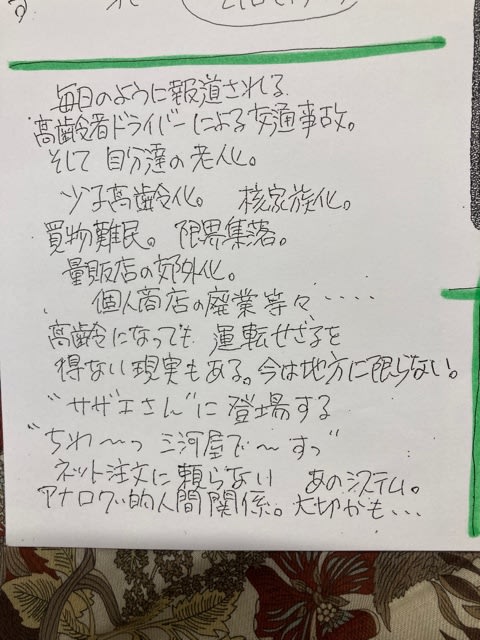 毎日のように報道される
高齢者ドライバーによる交通事故。
そして 自分達の老人化。
少子高齢化。 核家族化。
買物難民。 限界集落。
量販店の郊外化。
個人商店の廃業等々・・・・・
高齢になっても 運転せざるを
得ない現実もある。今は地方に限らない。
“サザエさん”に登場する
“ちわ〜っ 三河屋で〜すっ”
ネット注文に頼らない あのシステム。
アナログ的人間関係。大切かも・・・